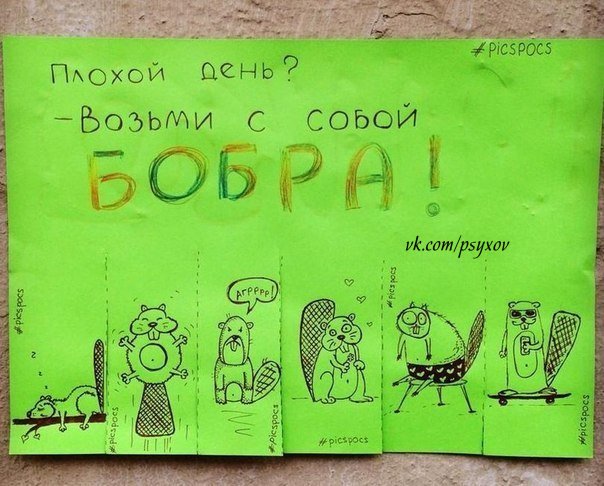 #picspocs
Плохой день?
-Возьми с собой
БОБРА!
vk.com/psyxov
#picspocs
#picspocs
Агрррр!
#picspocs
#picspocs
#picspocs
#picspocs